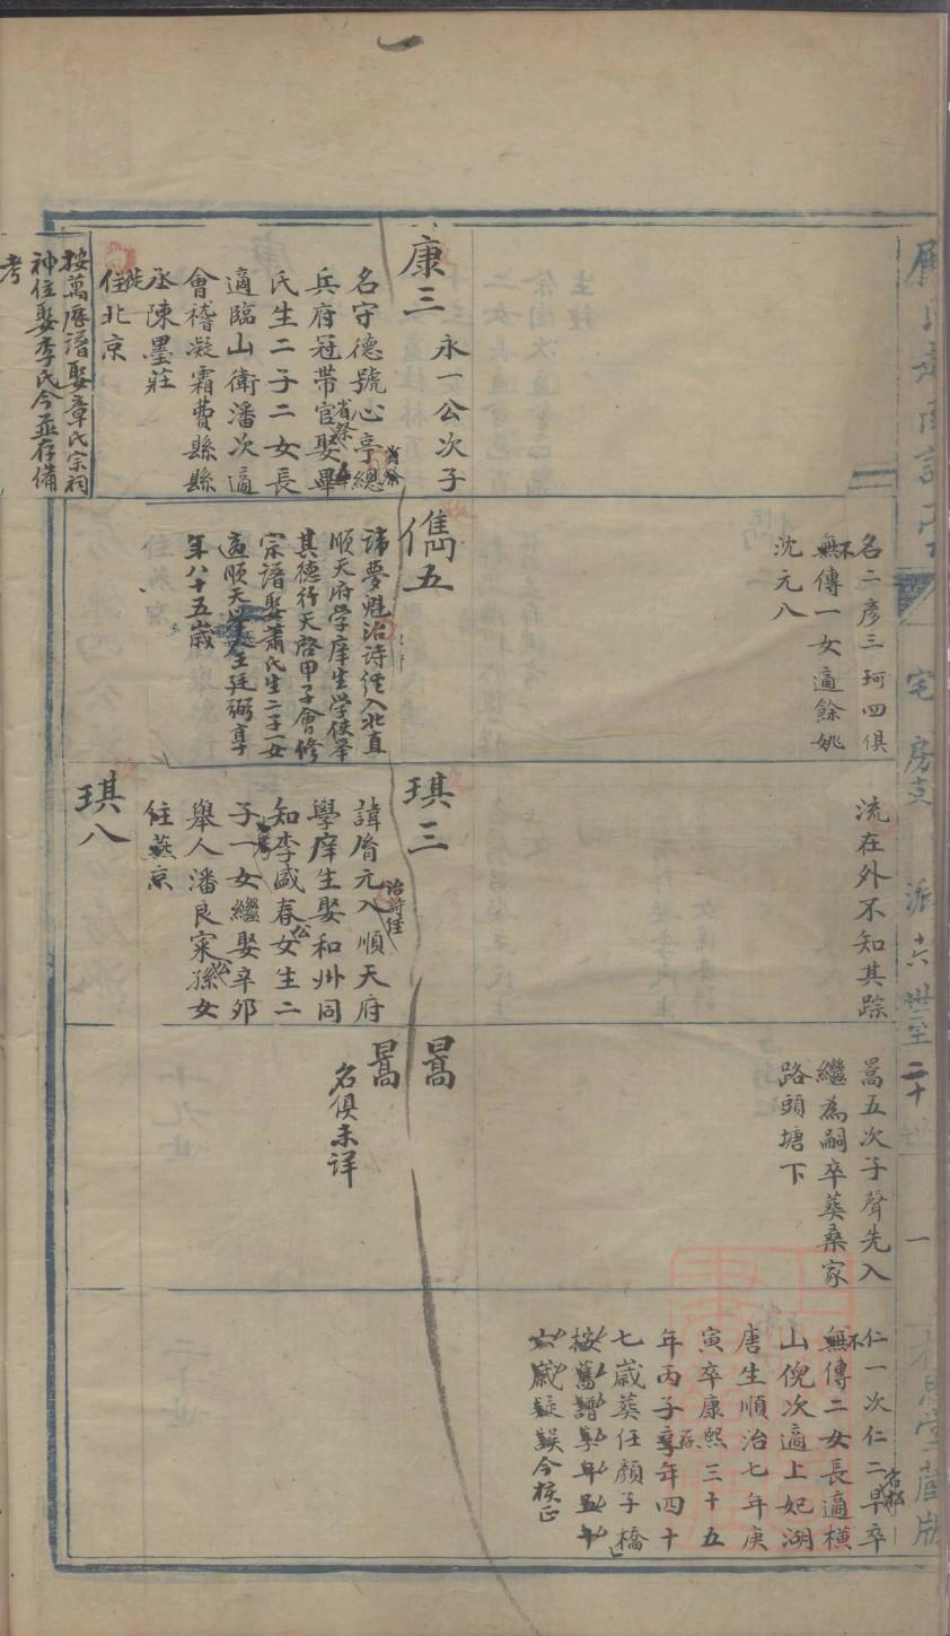 宅
房支
派
六
世至二十
一
名二彦三珂四俱
不無傳一女適餘姚
沈元八
流在外不知其踪
暠五次子聲先入
繼為嗣卒葬桑家
路頭塘下
仁一次仁二早卒
不無傳二女長適横
山倪次適上妃湖
唐生順治七年庚
寅卒康熙三十五
年丙子享年四十
七歲葬任顏子橋
按舊譜享年五十
六歲疑誤今核正
康三
永一公次子
名守德號心亭總
兵府冠帶官娶畢
省祭
氏生二子二女長
適臨山衛潘次適
會稽凝霜費縣縣
丞陳墨莊
徙住北京
按萬曆譜娶章氏宗祠
神位娶李氏今並存備
考
儁五
諱夢魁治詩經入北直
順天府学庠生学使举
其德行天啓甲子會修
宗譜娶蕭氏生二子一女
適順天學生王廷弼享
年八十五歲
琪三
治詩經
諱脩元入順天府
學庠生娶和州同
知李盛春公女生二
子一女繼娶辛夘
舉人潘良寀公孫女
住燕京
琪八
暠
暠
名俱未詳